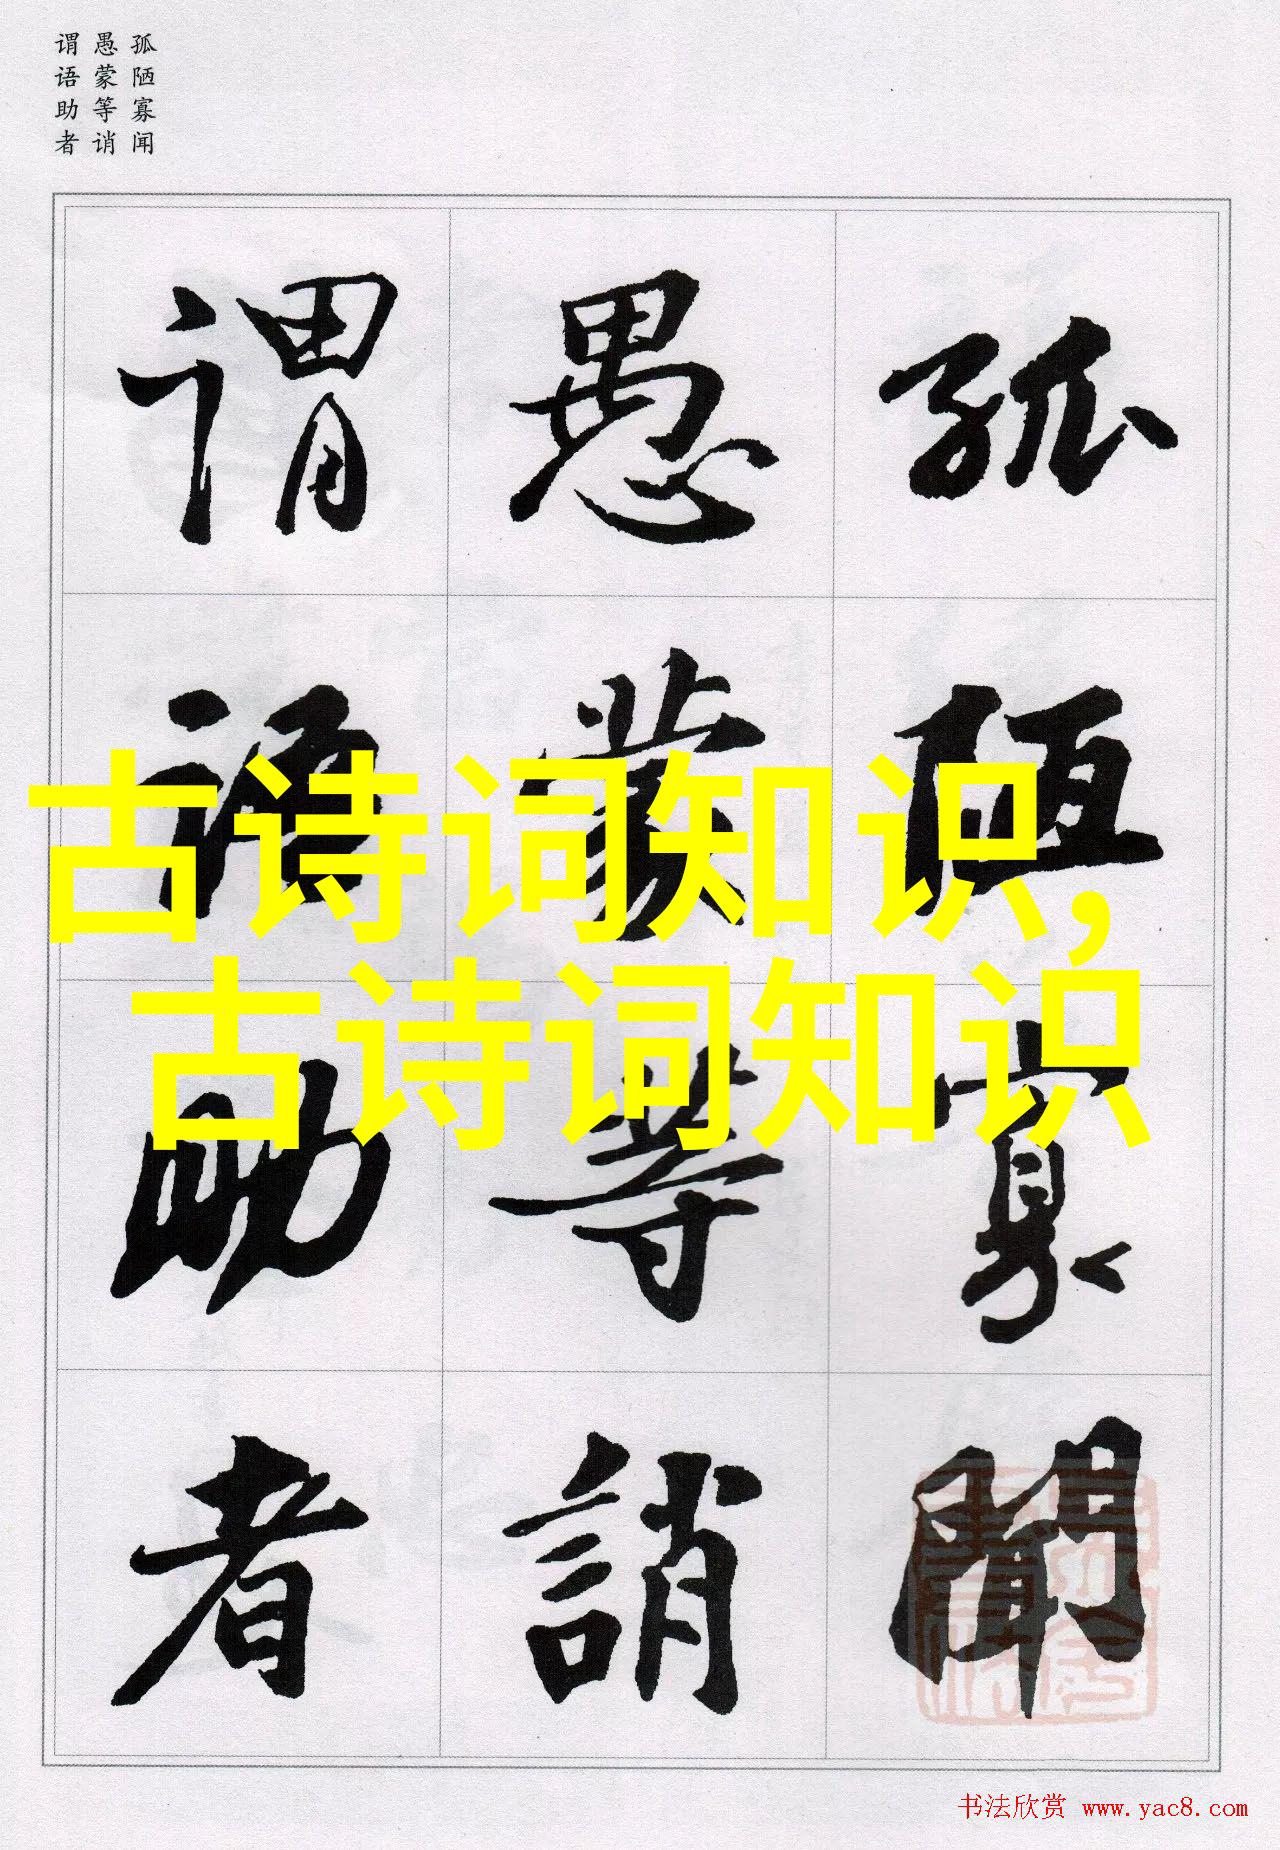 孤陋寡闻
愚蒙等诮
谓语助者
孤陋寡聞
愚蒙等誚
谓语助者
古诗词知识,
古诗词知识
书法欣赏 www.yac8.com